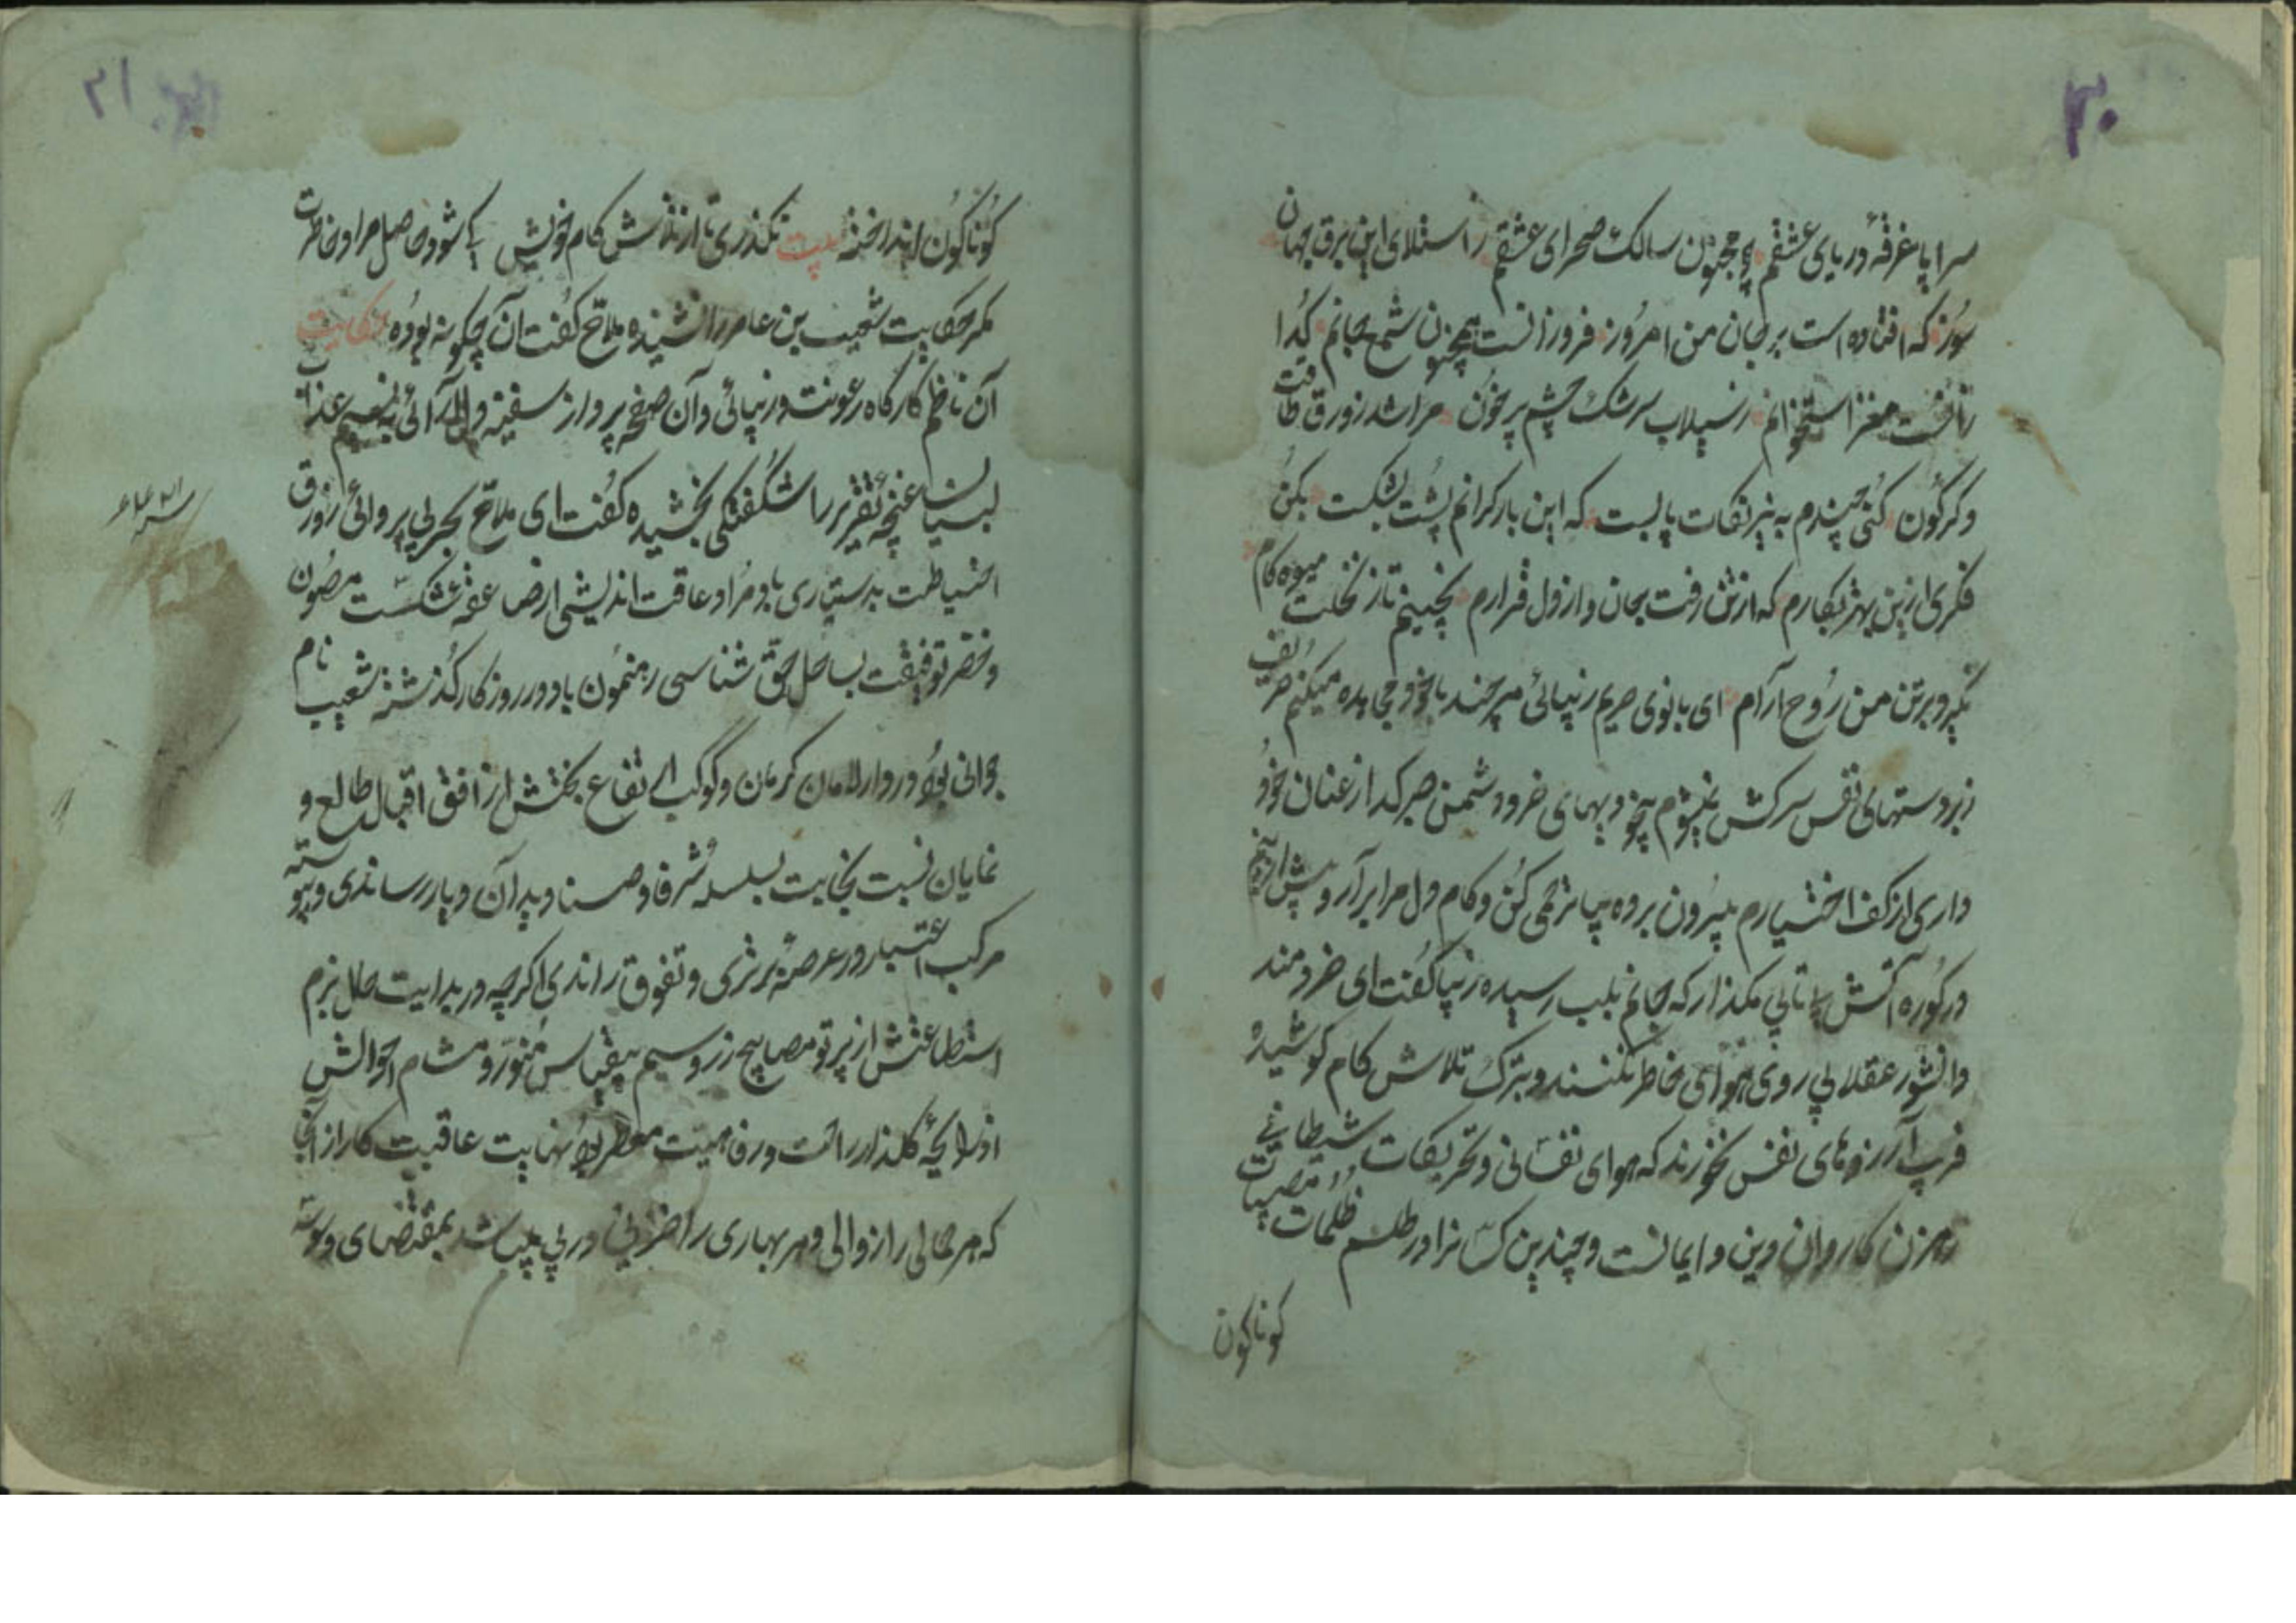 ۳۰
سراپا غرقهٔ دریای عشقم چو مجنون سالک صحرای عشقم ز استلای این برق جهان
سوز که افتاده است بر جان من امروز فروزانست همچون شمع جانم گدا
زانست مغز استخوانم ز سیلاب سرشک چشم پر خون مرا شد زورق طاقت
دگرگون کنی چندم به زنجیر نکات پابست که این بار گرانم پشت بشکست بکن
فکری ازین بهتر بکارم که از تن رفت جان و از دل قرارم بچینم تا ز نخلت میوه کام
بگیرد بر تن من روح آرام ای بانوی حریم زیبائی هر چند با خود مجاهده میکنم حریف
زبردستهای نفس سرکش نمیشوم بهای خرد دشمن صبر گداز عنان خود
داری از کف اختیارم بیرون برده بیا ترحمی کن و کام دل مرا برآر و بیش ازینم
در کوره آتش بیتابی مگذار که جانم بلب رسیده زیبا گفت ای خردمند
دانشور عقلا پی روی هوای خاطر نکنند و بترک تلاش کام کوشیده
فریب آرزوهای نفس نخورند که هوای نفسانی و تحریکات شیطانی
رهزن کاروان دین و ایمانست و چندین کس را در طلسم ظلمات مصیبات
کوناکون
کوناکون انداخته بیت نکذری تا از تلاش کام خویش کی شود حاصل مراد خاطرت
مگر حکایت شعیب بن عامر را نشنیده ملاح گفت آن چگونه بوده حکایت
آن ناظم کارگاه رعونت و زیبائی و آن صفحه پرداز سفینه دلآرائی به نسیم عذاب
لبان غنچه تقریر را شگفتگی بخشیده گفت ای ملاح بحر بی پروائی زورق
احتیاطت بدستیاری باد مراد عاقبت اندیشی از صاعقه شکست مصون
و خضر توفیقت بساحل حق شناسی رهنمون باد در روزگار گذشته شعیب نام
جوانی بود در دارالامان کرمان و کوکب ارتفاع بختش از افق اقبال طالع و
نمایان نسبت نجابت بسلسله شرفا و صنادید آن دیار رساندی و پیوسته
مرکب اعتبار در عرصهٔ برتری و تفوق راندی اگرچه در بدایت حال بزم
استطاعتش از پرتو مصابیح زر و سیم بیقیاس منور و مشام احوالش
از رایحهٔ گلذار راحت و رفاهیت معطر بود نهایت عاقبت کار از آنجا
که هر حالی را زوالی و هر بهاری را خزانی در پی میباشد بمقتضای وسوسه